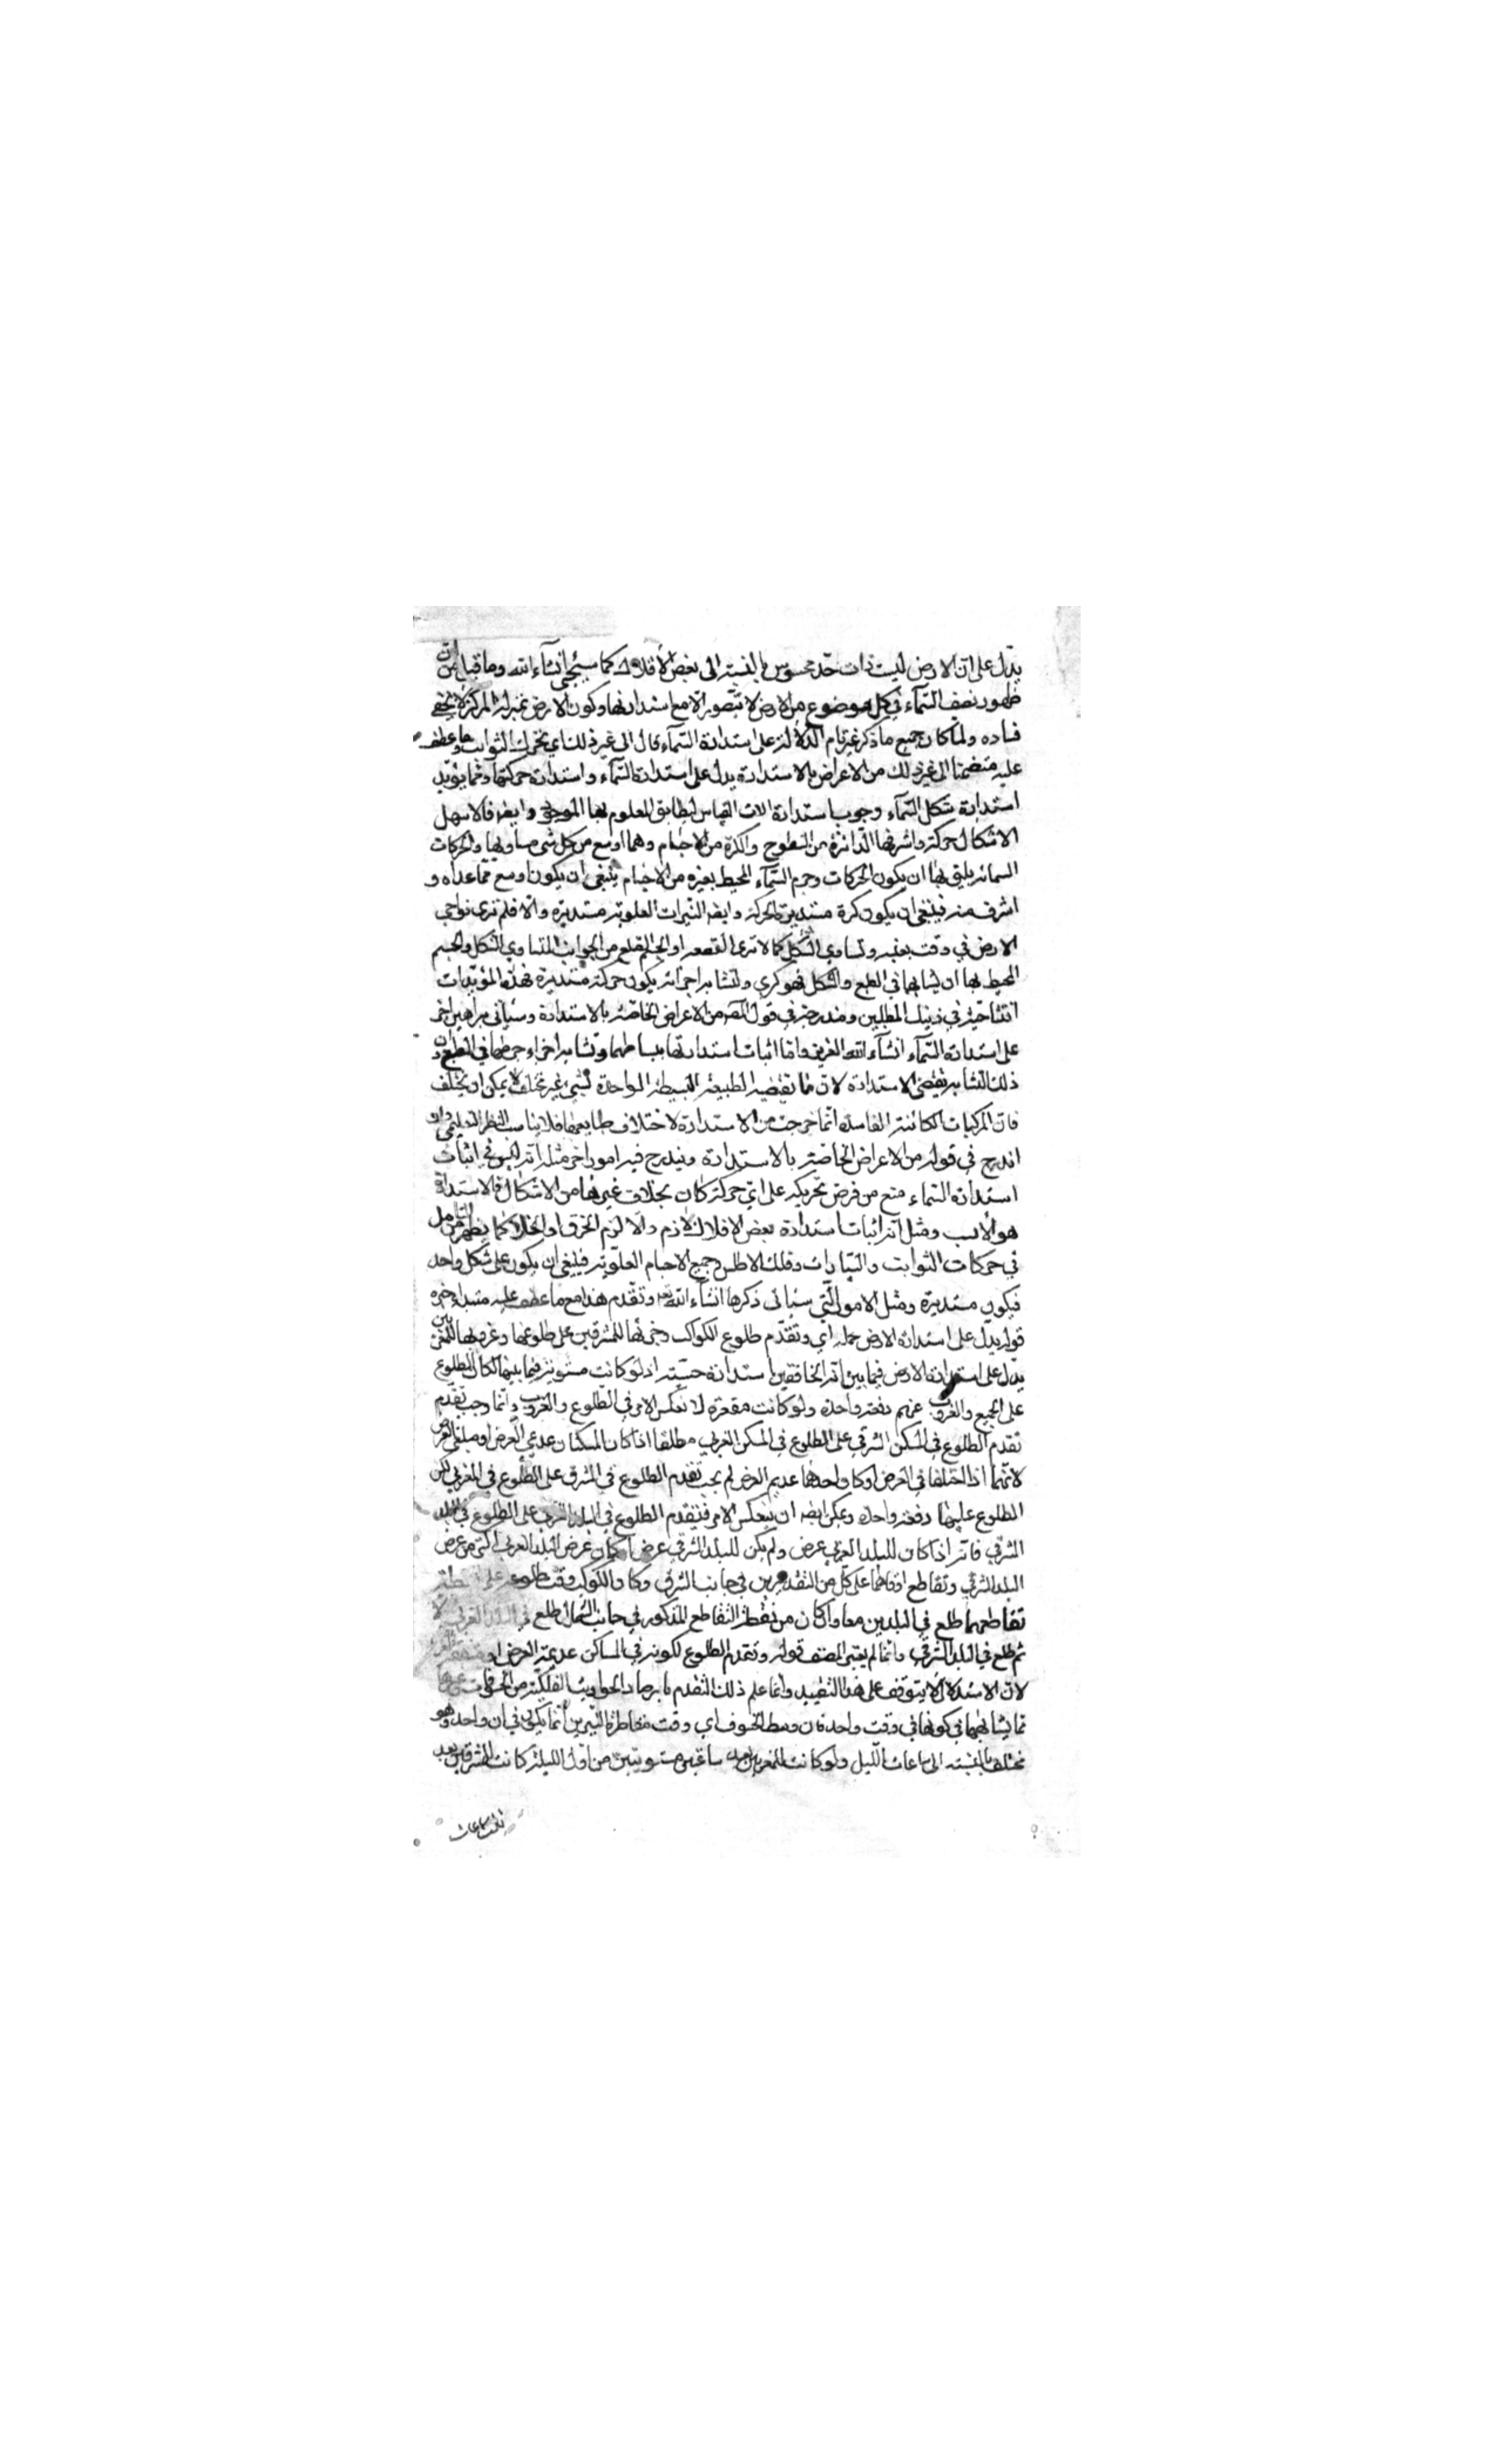 يدل على ان الارض ليست ذات حد محسوس بالنسبة الى بعض الافلاك كما سيجئ انشآء الله وما قيل من ان
ظهور نصف السمآء في كل موضوع من الارض لا يتصور الا مع استدارتها وكون الارض بمنزلة المركز لا يخفى
فساده ولما كان جميع ما ذكر غير تام الدلالة على استدارة السمآء قال الى غير ذلك اي تحرك الثوابت وما عطف
عليه منضما الى غير ذلك من الاعراض بالاستدارة يدل على استدارة السمآء واستدارة حركتها ومما يؤيد
استدارة شكل السمآء وجوب استدارة الات القياس ليطابق المعلوم بها الموجود وايضا فالاسهل
الاشكال حركة واشرفها الدائرة من السطوح والكرة من الاجسام وهما اوسع من كل شئ مساو بها والحركات
السمائية يليق بها ان يكون الحركات وجرم السمآء المحيط بغيره من الاجسام ينبغي ان يكون اوسع مما عداه و
اشرف منه فينبغي ان يكون كرة مستديرة الحركة وايضا النيرات العلوية مستديرة والا فلم ترى نواحي
الارض في وقت بعينه وتساوي الشكل كما لا ترى القصعة او المضلع من الجوانب المتساوي الشكل والجسم
المحيط بها ان يشابهها في الطبع والشكل فهو كري ولتشابه اجزائه يكون حركته مستديرة فهذه المؤيدات
في ذينك المطلبين ومندرجة في قول المص من الاعراض الخاصة بالاستدارة وسيأتي براهين اخر
على استدارة السمآء انشآء الله العزيز واما اثبات استدارتها ببساطتها وتشابه اجزاء جرمها في الطبع وان
ذلك التشابه يقتضي الاستدارة لان ما تقتضيه الطبيعة البسيطة الواحدة لشئ غير مختلف لا يمكن ان يختلف
فان المركبات الكائنة الفاسدة انما خرجت من الاستدارة لاختلاف طبايعها فلا يناسب النظر التعليمي وان
اندرج في قوله من الاعراض الخاصة بالاستدارة ويندرج فيه امور اخر مثل انه ليس في اثبات
استدارة السماء منع من فرض تحريكه على اي حركة كان بخلاف غيرها من الاشكال فالاستدارة
هو الانسب ومثل انه اثبات استدارة بعض الافلاك لازم والا لزم الخرق او الخلا كما يظهر من التأمل
في حركات الثوابت والسيارات وفلك الاطلس وجميع الاجسام العلوية فينبغي ان يكون على شكل واحد
فيكون مستديرة ومثل الامور التي سيأتي ذكرها انشآء الله تعه وتقدم هذا مع ما عطف عليه مبتدا وخبره
قوله يدل على استدارة الارض جملة اي وتقدم طلوع الكواكب وغروبها للمشرقيين على طلوعها وغروبها للمغربيين
يدل على استدارة الارض فيما بين الخافقين استدارة حسية اذ لو كانت مستوية فيما بينهما لكان الطلوع
على الجميع والغروب عنهم دفعة واحدة ولو كانت مقعرة لانعكس الامر في الطلوع والغروب وانما وجب تقدم
تقدم الطلوع في المسكن الشرقي على الطلوع في المسكن الغربي مطلقا اذا كان المسكنان عديمي العرض او متفقي العرض
لانهما اذا اختلفا في العرض او كان واحدهما عديم العرض لم يجب تقدم الطلوع في المشرق على الطلوع في المغربي لكن
الطلوع عليهما دفعة واحدة ويمكن ايضا ان ينعكس الامر فيتقدم الطلوع في البلد الغربي على الطلوع في البلد
الشرقي فانه اذا كان للبلد الغربي عرض ولم يكن للبلد الشرقي عرض او كان عرض البلد الغربي اكثر من عرض
البلد الشرقي وتقاطع افقاهما على كل من التقديرين في جانب الشرق وكان الكوكب وقت طلوعه على نقطة
تقاطعهما طلع في البلدين معا وان كان من نقطة التقاطع المذكور في جانب الشمال طلع في البلد الغربي اولا
ثم طلع في البلد الشرقي وانما لم يقيد المصنف قوله وتقدم الطلوع لكونه في المساكن عديمة العرض او متفقة العرض
لان الاستدلال لا يتوقف على هذا التقييد وانما علم ذلك التقدم بارصاد الحوادث الفلكية من الخسوفات
مما يشابهها في كونها في وقت واحد فان وسط الخسوف اي وقت مقاطرة النيرين انما يكون في ان واحد وهو
مختلف بالنسبة الى ساعات الليل ولو كانت للمغربيين بعد ساعتين مستويتين من اول الليل كانت للمشرقيين بعد
ثلث ساعات